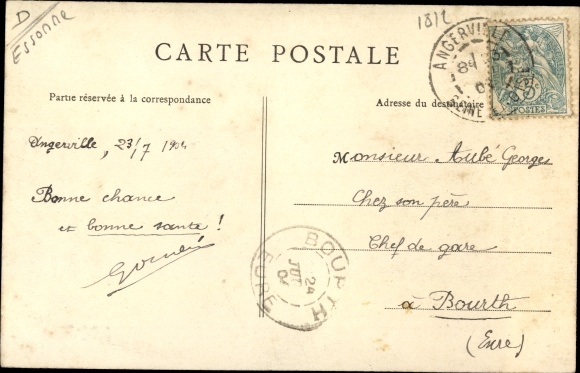 D
Essonne
1812
CARTE POSTALE
Partie réservée à la correspondance
Adresse du destinataire
ANGERVILLE
POSTES
Angerville, 23/7 1904
Bonne chance
et bonne santé !
Monsieur Aubé Georges
Chez son père
Chef de gare
à Bourth
(Eure)
BOURTH
24
JUIL
04
EURE